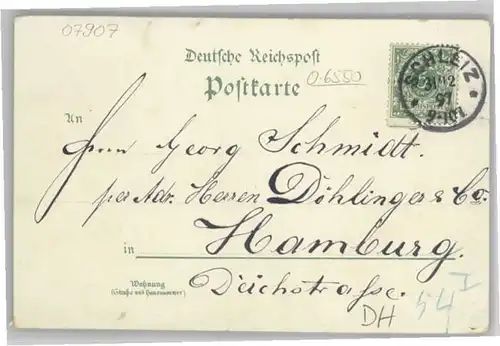 07907
Deutsche Reichspost
Postkarte
0.6550
SCHLEIZ
31/12
97
9-10V.
An
Herrn Georg Schmidt.
per Adr. Herren Döhlinger & Co.
in Hamburg.
Wohnung
(Straße und Hausnummer)
Deichstrasse.
54 I
DH